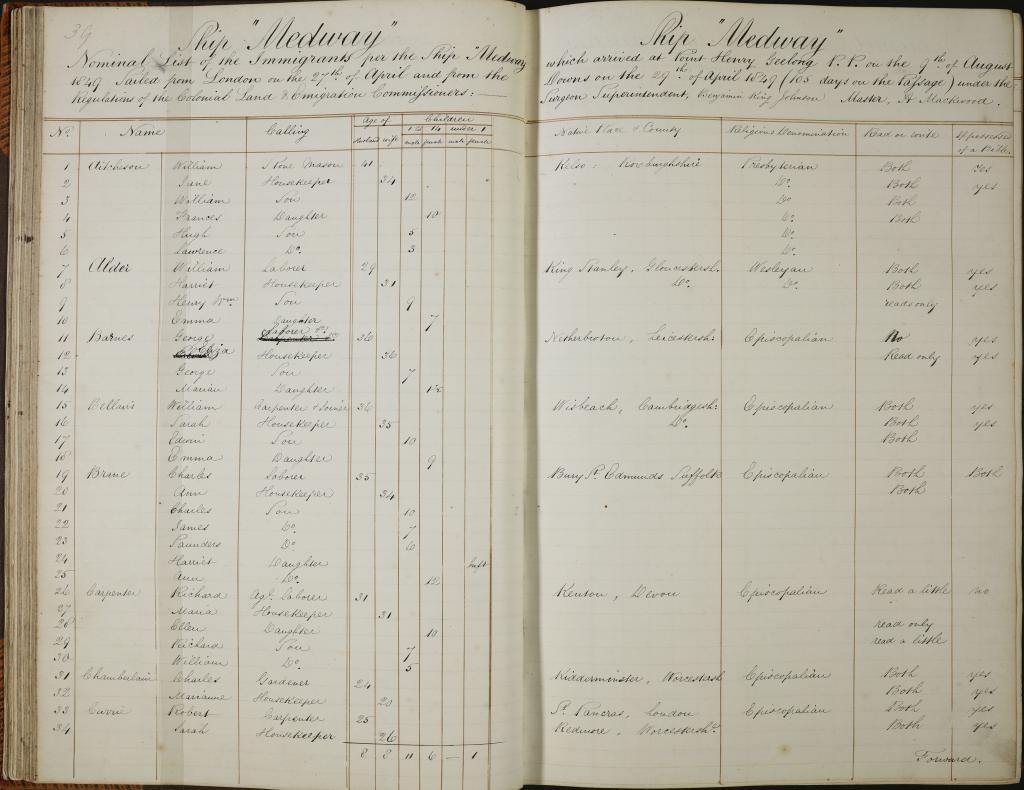 39
Ship "Medway"
Nominal List of the Immigrants per the Ship "Medway
1849 Sailed from London on the 27th of April and from the
Regulations of the Colonial Land & Emigration Commissioners:—
Ship "Medway"
which arrived at Point Henry Geelong P.P. on the 9th of August
Downs on the 29th of April 1849 (103 days on the Passage) under the
Surgeon Superintendent, Benjamin King Johnson Master, A Mackwood.
No. Name Calling Age of Husband wife Children 1 to 14 male female under 1 male female Native Place & County Religious Denomination Read or write If possessed of a Bible
1 Aitchison William Stone Mason 41 Kelso, Roxburghshire Presbyterian Both yes
2 Jane Housekeeper 34 Do. Both yes
3 William Son 12 Do Both
4 Frances Daughter 10 Do. Both
5 Hugh Son 5 Do.
6 Lawrence Do. 3 Do.
7 Alder William Laborer 29 King Stanley, Gloucestersh. Wesleyan Both yes
8 Harriet Housekeeper 31 Do. Do. Both yes
9 Henry Wm Son 9 reads only
10 Emma Daughter 7
11 Barnes George Laborer 36 Leicestersh: Episcopalian No yes
12 Eliza Housekeeper 36 Read only yes
13 George Son 7
14 Marian Daughter 12
15 Bellairs William Carpenter & Joiner 36 Wisbeach, Cambridgesh: Episcopalian Both yes
16 Sarah Housekeeper 35 Do. Both yes
17 Edwin Son 10 Both
18 Emma Daughter 9
19 Brane Charles Laborer 35 Bury St. Edmunds Suffolk Episcopalian Both Both
20 Ann Housekeeper 34 Both
21 Charles Son 10
22 James Do. 7
23 Saunders Do. 6
24 Harriet Daughter Inft
25 Ann Do. 12
26 Carpenter Richard Agl. Laborer 31 Kenton, Devon Episcopalian Read a little no
27 Maria Housekeeper 31
28 Ellen Daughter 10 read only
29 Richard Son 7 read a little
30 William Do. 5
31 Chamberlain Charles Gardener 24 Kidderminster, Worcestersh Episcopalian Both yes
32 Marianne Housekeeper 20 Both yes
33 Currie Robert Carpenter 25 St. Pancras, London Episcopalian Both yes
34 Sarah Housekeeper 26 Redmore, Worcestersh. Both yes
8 8 11 6 — 1
Forward.